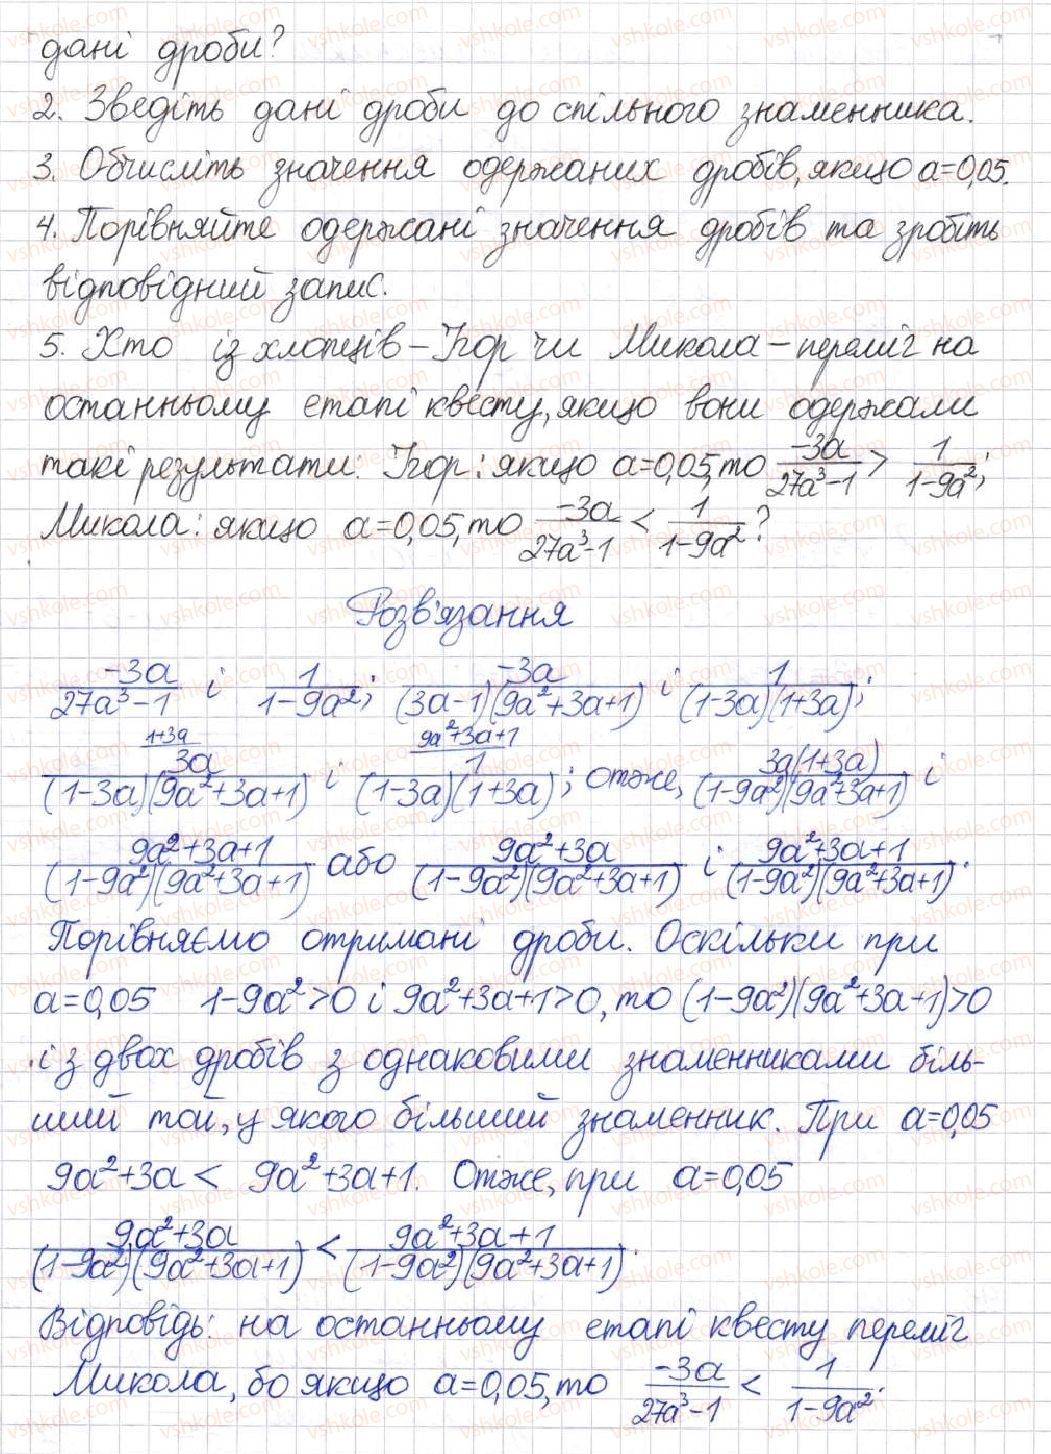 дані дроби?
2. Зведіть дані дроби до спільного знаменника.
3. Обчисліть значення одержаних дробів, якщо a=0,05.
4. Порівняйте одержані значення дробів та зробіть
відповідний запис.
5. Хто із хлопців – Ігор чи Микола – переміг на
останньому етапі квесту, якщо вони одержали
такі результати: Ігор: якщо a=0,05, то -3a/(27a³-1) > 1/(1-9a²);
Микола: якщо a=0,05, то -3a/(27a³-1) < 1/(1-9a²)?
Розв'язання
-3a/(27a³-1) і 1/(1-9a²); -3a/((3a-1)(9a²+3a+1)) і 1/((1-3a)(1+3a));
1+3a 9a²+3a+1
3a/((1-3a)(9a²+3a+1)) і 1/((1-3a)(1+3a)); отже, 3a(1+3a)/((1-9a²)(9a²+3a+1)) і
(9a²+3a+1)/((1-9a²)(9a²+3a+1)) або (9a²+3a)/((1-9a²)(9a²+3a+1)) і (9a²+3a+1)/((1-9a²)(9a²+3a+1)).
Порівняємо отримані дроби. Оскільки при
a=0,05 1-9a²>0 і 9a²+3a+1>0, то (1-9a²)(9a²+3a+1)>0
і з двох дробів з однаковими знаменниками біль-
ший той, у якого більший знаменник. При a=0,05
9a²+3a < 9a²+3a+1. Отже, при a=0,05
(9a²+3a)/((1-9a²)(9a²+3a+1)) < (9a²+3a+1)/((1-9a²)(9a²+3a+1)).
Відповідь: на останньому етапі квесту переміг
Микола, бо якщо a=0,05, то -3a/(27a³-1) < 1/(1-9a²).
vshkole.com